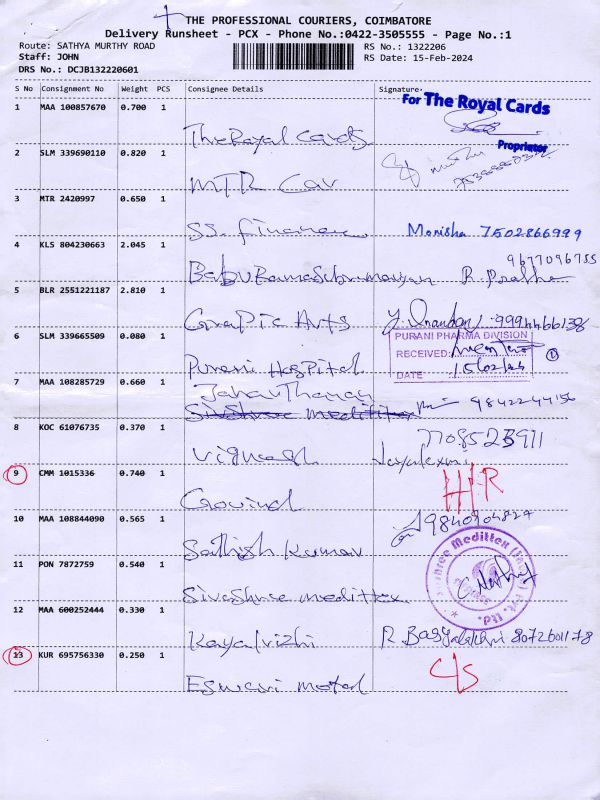 THE PROFESSIONAL COURIERS, COIMBATORE
Delivery Runsheet - PCX - Phone No.:0422-3505555 - Page No.:1
Route: SATHYA MURTHY ROAD
Staff: JOHN
DRS No.: DCJB132220601
RS No.: 1322206
RS Date: 15-Feb-2024
S No Consignment No Weight PCS Consignee Details Signature
For The Royal Cards
1 MAA 100857670 0.700 1
The Royal Cards
Proprietor
2 SLM 339690110 0.820 1
MTR Car
3 MTR 2420997 0.650 1
SS. finance Monisha 7502866999
4 KLS 804230663 2.045 1
9677096755
Babu Ramasubramaniyan R. Prabha
5 BLR 2551221187 2.810 1
Grapic Arts 9994466138
6 SLM 339665509 0.080 1
PURANI PHARMA DIVISION
RECEIVED:
DATE 15/02/24
Purani Hospital
7 MAA 108285729 0.660 1
Sivashree medittex 9842244156
8 KOC 61076735 0.370 1
7708523911
Vignesh Jayalaxmi
9 CMM 1015336 0.740 1
Govind
10 MAA 108844090 0.565 1
9840904824
Sathish Kumar
11 PON 7872759 0.540 1
Sivashree medittex
12 MAA 600252444 0.330 1
Kayalvizhi R 8072601178
13 KUR 695756330 0.250 1
C/S
Eswari motel